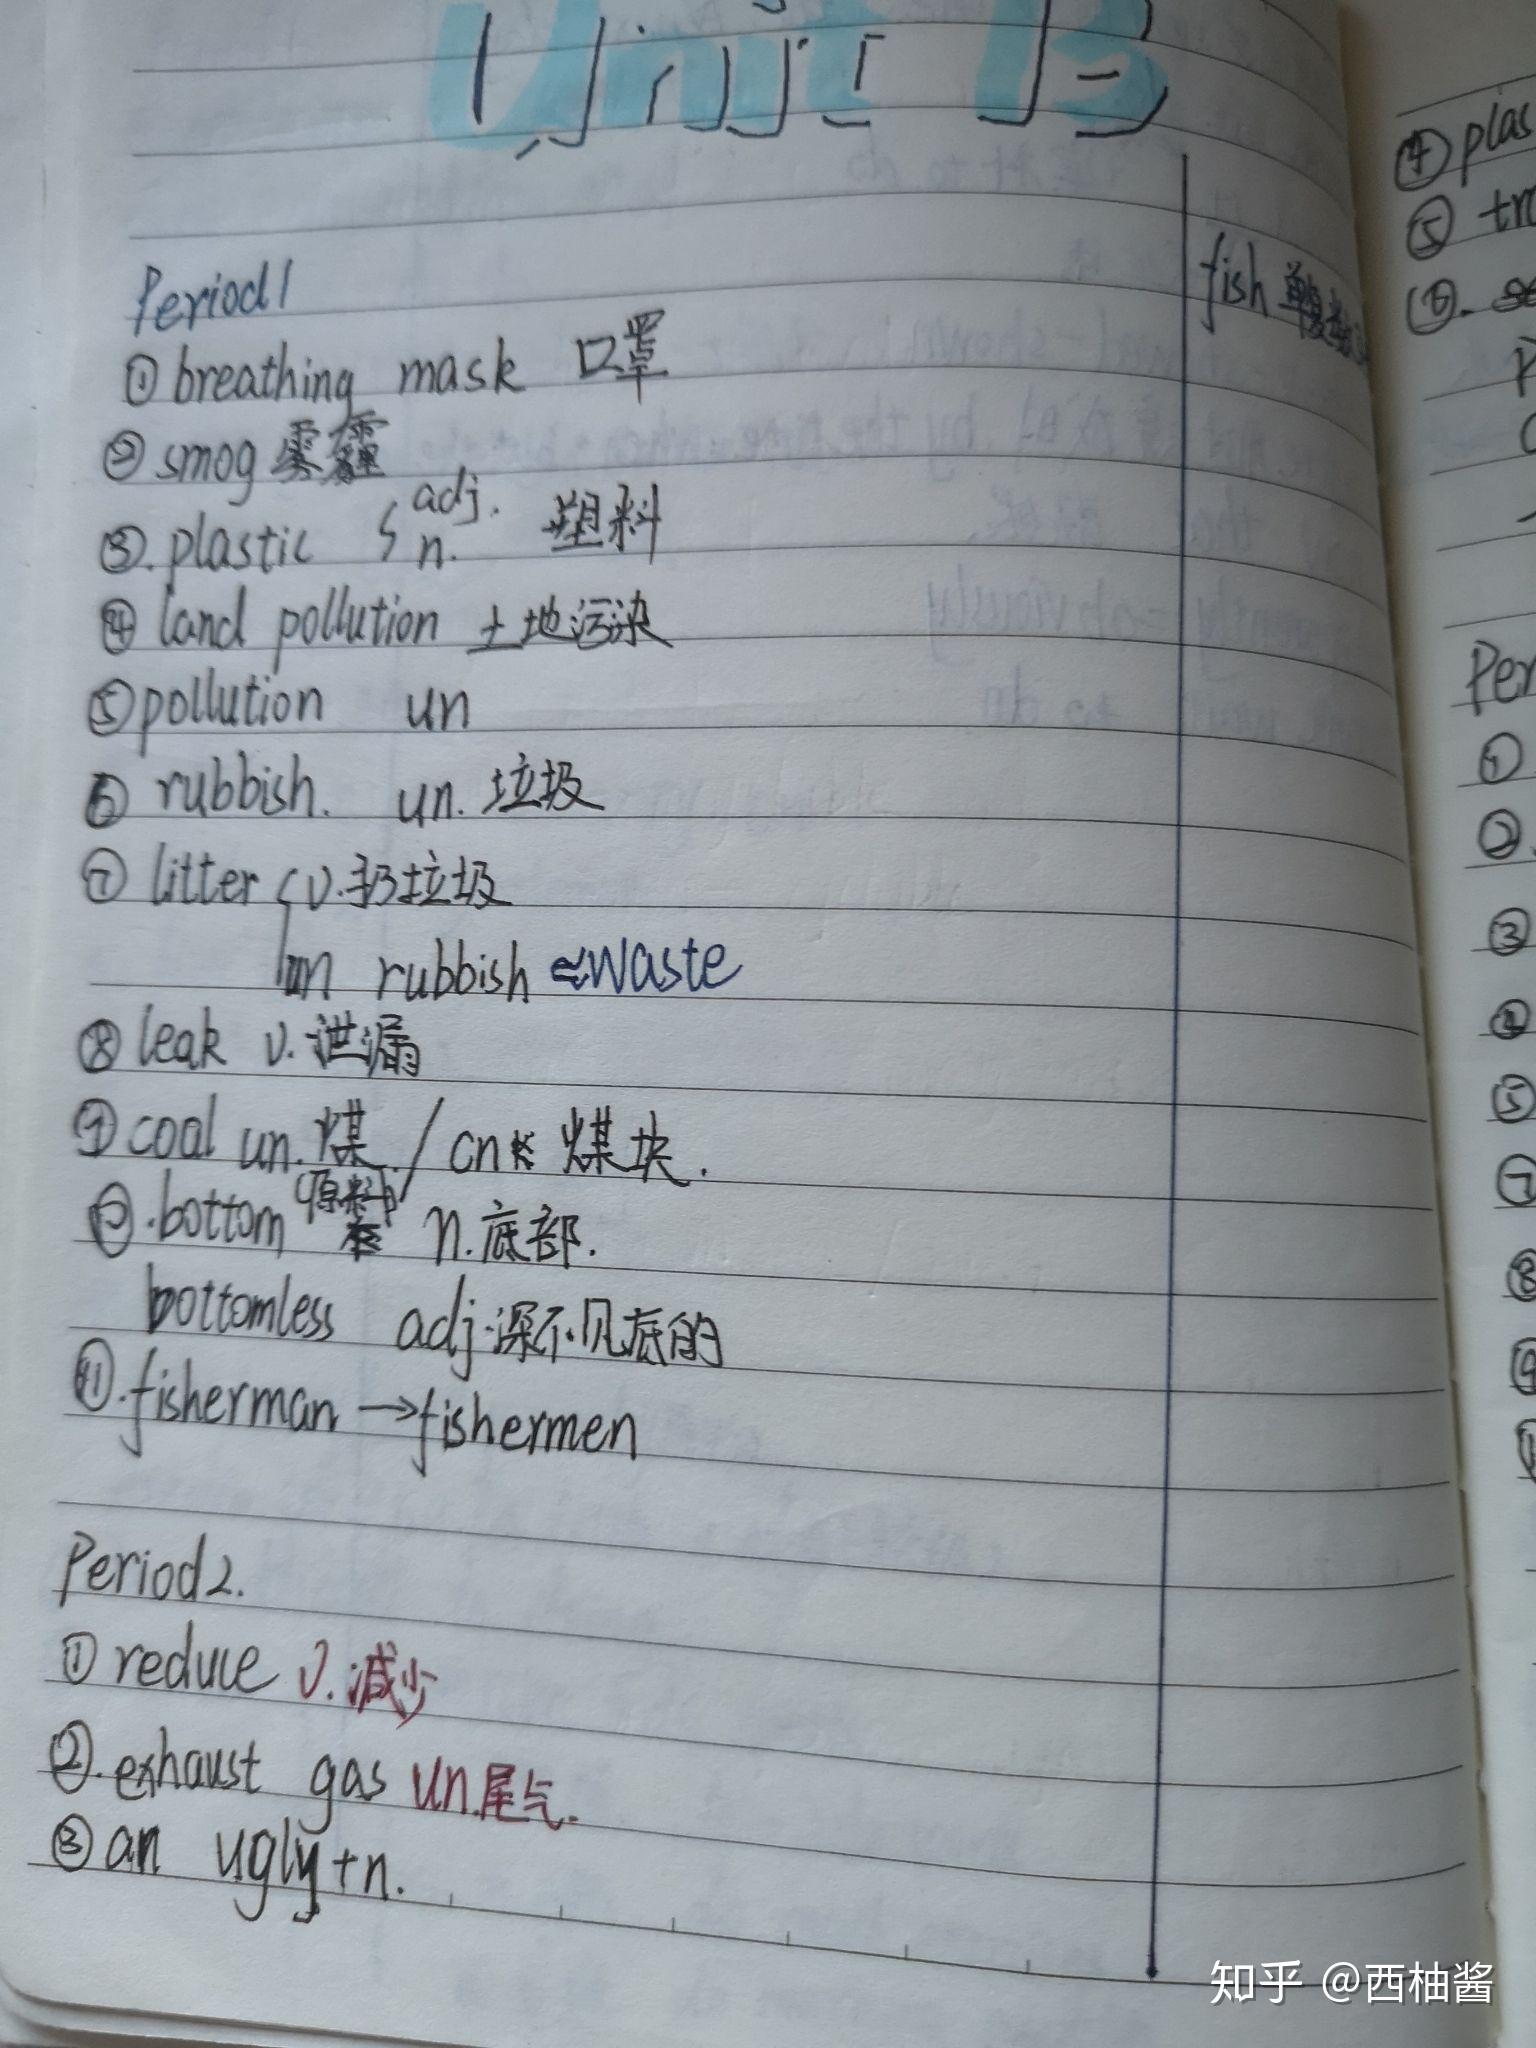 Unit 13
Period 1
① breathing mask 口罩
② smog 雾霾
③. plastic { adj. n. 塑料
④ land pollution 土地污染
⑤ pollution un
⑥ rubbish. un. 垃圾
⑦ litter { v. 扔垃圾
un rubbish ≈ waste
⑧ leak v. 泄漏
⑨ coal un. 煤 (原料) / cn 煤块.
⑩. bottom n. 底部.
bottomless adj. 深不见底的
⑪. fisherman → fishermen
Period 2.
① reduce v. 减少
②. exhaust gas un. 尾气.
③ an ugly + n.
fish 单复数
④ plas
⑤ tr
⑥.
Per
①
②.
③
④
⑤
⑦
⑧
⑨
知乎 @西柚酱